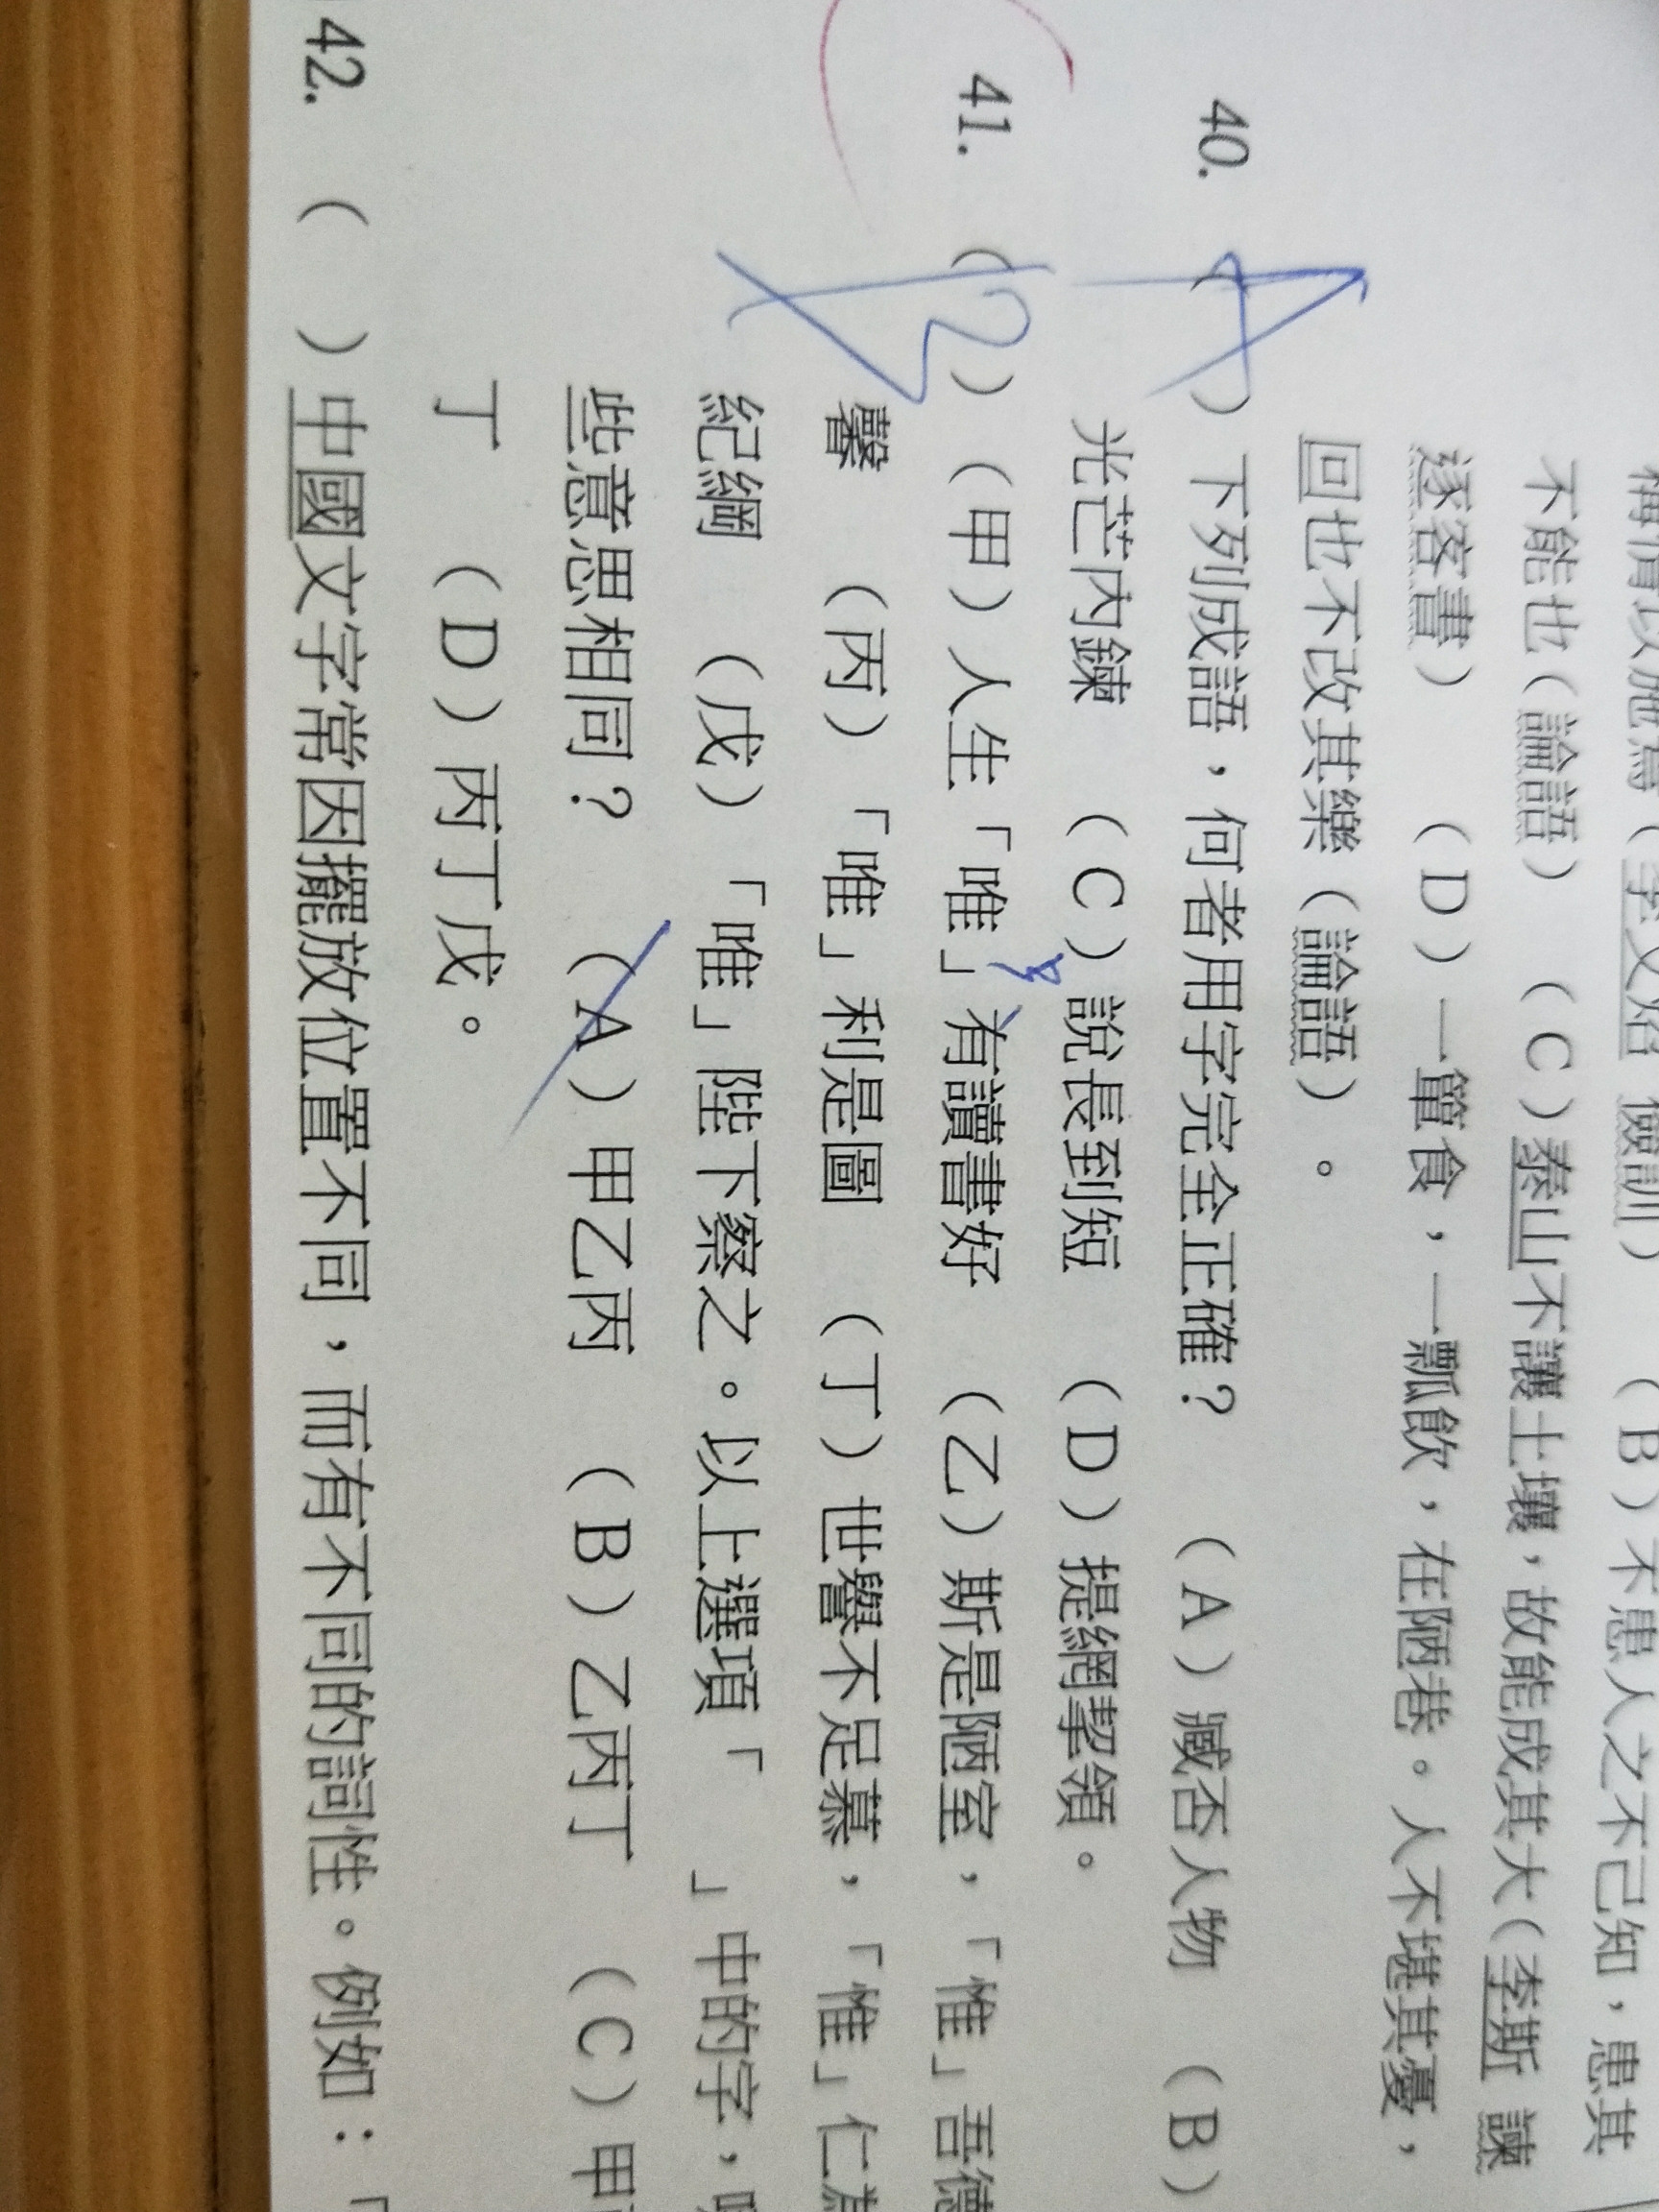 不能也（論語）　（C）泰山不讓土壤，故能成其大（李斯 諫
逐客書）　（D）一簞食，一瓢飲，在陋巷。人不堪其憂，
回也不改其樂（論語）。
40.（A）下列成語，何者用字完全正確？　（A）臧否人物　（B）
光芒內鍊　（C）說長到短　（D）提網挈領。
41.（　）（甲）人生「唯」有讀書好　（乙）斯是陋室，「惟」吾德
馨　（丙）「唯」利是圖　（丁）世譽不足慕，「惟」仁為
紀綱　（戊）「唯」陛下察之。以上選項「　」中的字，哪
些意思相同？　（A）甲乙丙　（B）乙丙丁　（C）甲
丁　（D）丙丁戊。
42.（　）中國文字常因擺放位置不同，而有不同的詞性。例如：「